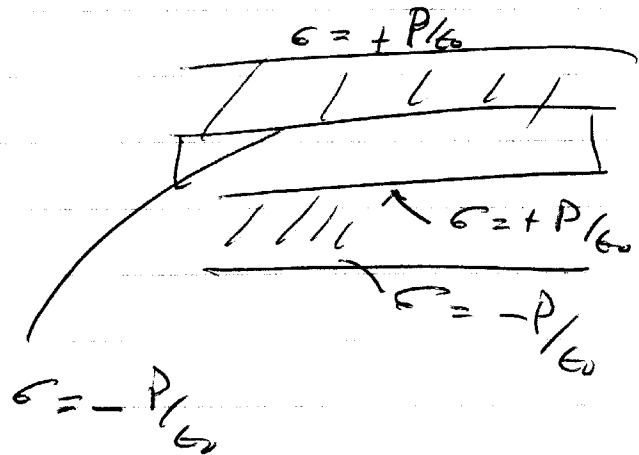 σ = + P/ε₀
σ = + P/ε₀
σ = - P/ε₀
σ = - P/ε₀